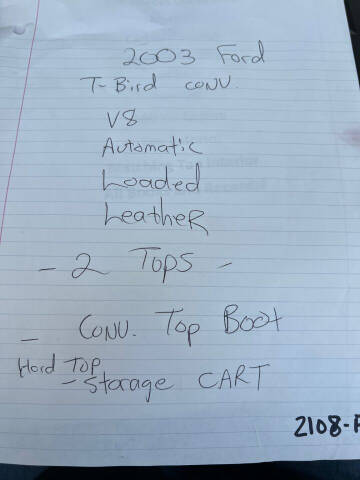 2003 Ford
T-Bird conv.
V8
Automatic
Loaded
Leather
- 2 Tops -
- Conv. Top Boot
Hard Top
- Storage CART
2108-F